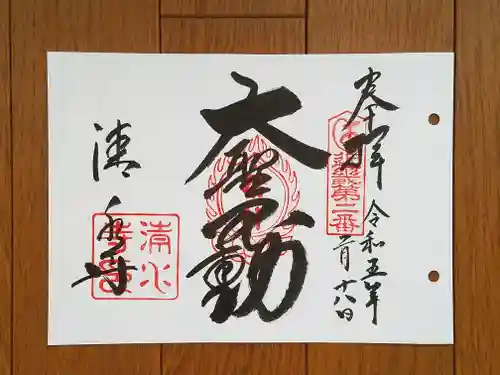 奉拝
令和五年
二月十八日
第二番
大聖不動
清水寺
清水
寺印